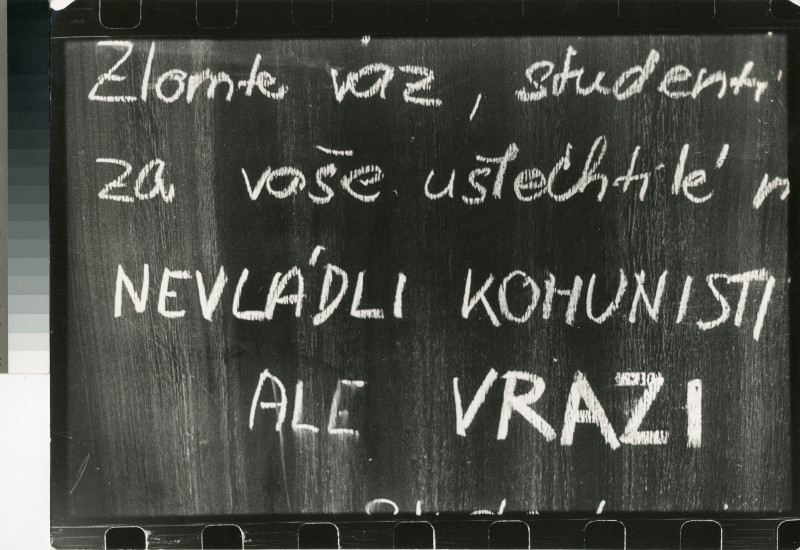 Zlomte vaz, studenti
za vaše ušlechtilé
NEVLÁDLI KOMUNISTI
ALE VRAZI